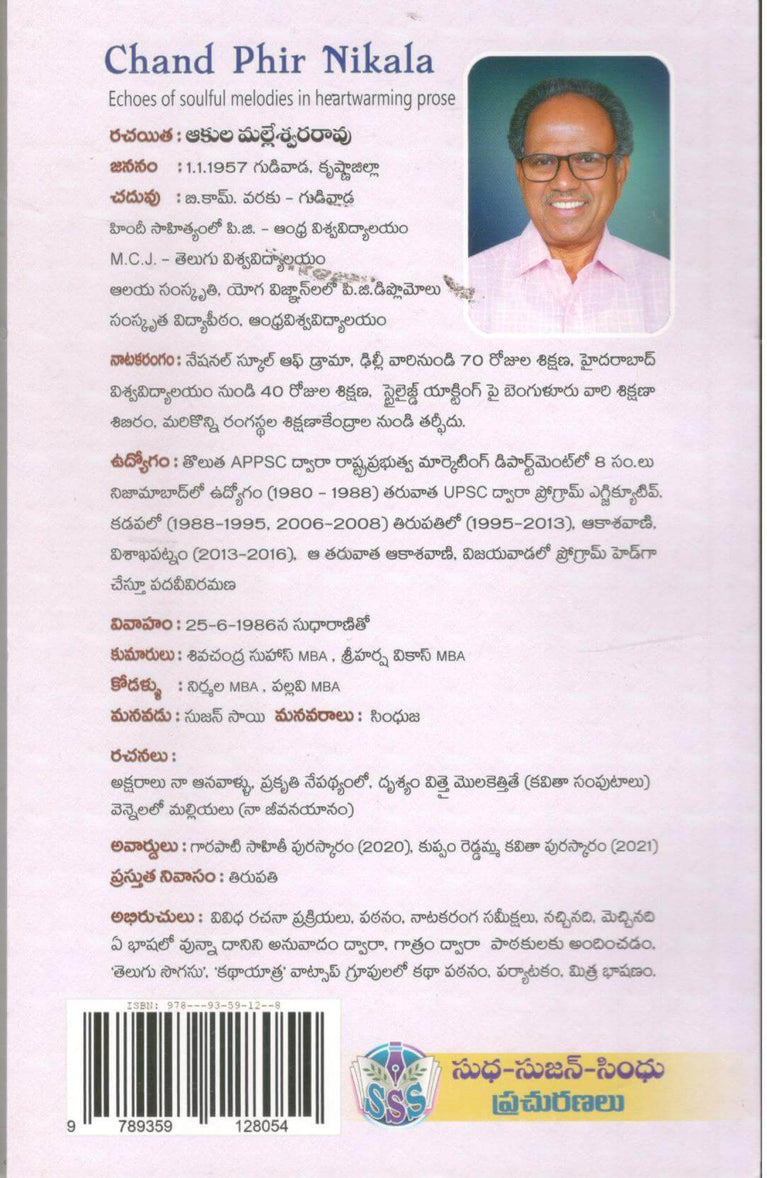 Chand Phir Nikala
Echoes of soulful melodies in heartwarming prose
రచయిత : ఆకుల మల్లేశ్వరరావు
జననం : 1.1.1957 గుడివాడ, కృష్ణాజిల్లా
చదువు : బి.కామ్. వరకు – గుడివాడ
హిందీ సాహిత్యంలో పి.జి. – ఆంధ్ర విశ్వవిద్యాలయం
M.C.J. – తెలుగు విశ్వవిద్యాలయం
ఆలయ సంస్కృతి, యోగ విజ్ఞాన్‌లలో పి.జి.డిప్లొమోలు
సంస్కృత విద్యాపీఠం, ఆంధ్రవిశ్వవిద్యాలయం
నాటకరంగం : నేషనల్ స్కూల్ ఆఫ్ డ్రామా, ఢిల్లీ వారినుండి 70 రోజుల శిక్షణ, హైదరాబాద్
విశ్వవిద్యాలయం నుండి 40 రోజుల శిక్షణ, స్టైలైజ్డ్ యాక్టింగ్ పై బెంగుళూరు వారి శిక్షణా
శిబిరం, మరికొన్ని రంగస్థల శిక్షణాకేంద్రాల నుండి తర్ఫీదు.
ఉద్యోగం : తొలుత APPSC ద్వారా రాష్ట్రప్రభుత్వ మార్కెటింగ్ డిపార్ట్‌మెంట్‌లో 8 సం.లు
నిజామాబాద్‌లో ఉద్యోగం (1980 – 1988) తరువాత UPSC ద్వారా ప్రోగ్రామ్ ఎగ్జిక్యూటివ్.
కడపలో (1988-1995, 2006-2008) తిరుపతిలో (1995-2013), ఆకాశవాణి,
విశాఖపట్నం (2013-2016), ఆ తరువాత ఆకాశవాణి, విజయవాడలో ప్రోగ్రామ్ హెడ్‌గా
చేస్తూ పదవీవిరమణ
వివాహం : 25-6-1986న సుధారాణితో
కుమారులు : శివచంద్ర సుహాస్ MBA , శ్రీహర్ష వికాస్ MBA
కోడళ్ళు : నిర్మల MBA , పల్లవి MBA
మనవడు : సుజన్ సాయి మనవరాలు : సింధుజ
రచనలు :
అక్షరాలు నా ఆనవాళ్ళు, ప్రకృతి నేపథ్యంలో, దృశ్యం విత్తై మొలకెత్తితే (కవితా సంపుటాలు)
వెన్నెలలో మల్లియలు (నా జీవనయానం)
అవార్డులు : గారపాటి సాహితీ పురస్కారం (2020), కుప్పం రెడ్డమ్మ కవితా పురస్కారం (2021)
ప్రస్తుత నివాసం : తిరుపతి
అభిరుచులు : వివిధ రచనా ప్రక్రియలు, పఠనం, నాటకరంగ సమీక్షలు, నచ్చినది, మెచ్చినది
ఏ భాషలో వున్నా దానిని అనువాదం ద్వారా, గాత్రం ద్వారా పాఠకులకు అందించడం,
'తెలుగు సొగసు', 'కథాయాత్ర' వాట్సాప్ గ్రూపులలో కథా పఠనం, పర్యాటకం, మిత్ర భాషణం.
ISBN: 978---93-59-12--8
9 789359 128054
SSS
సుధ-సుజన్-సింధు
ప్రచురణలు